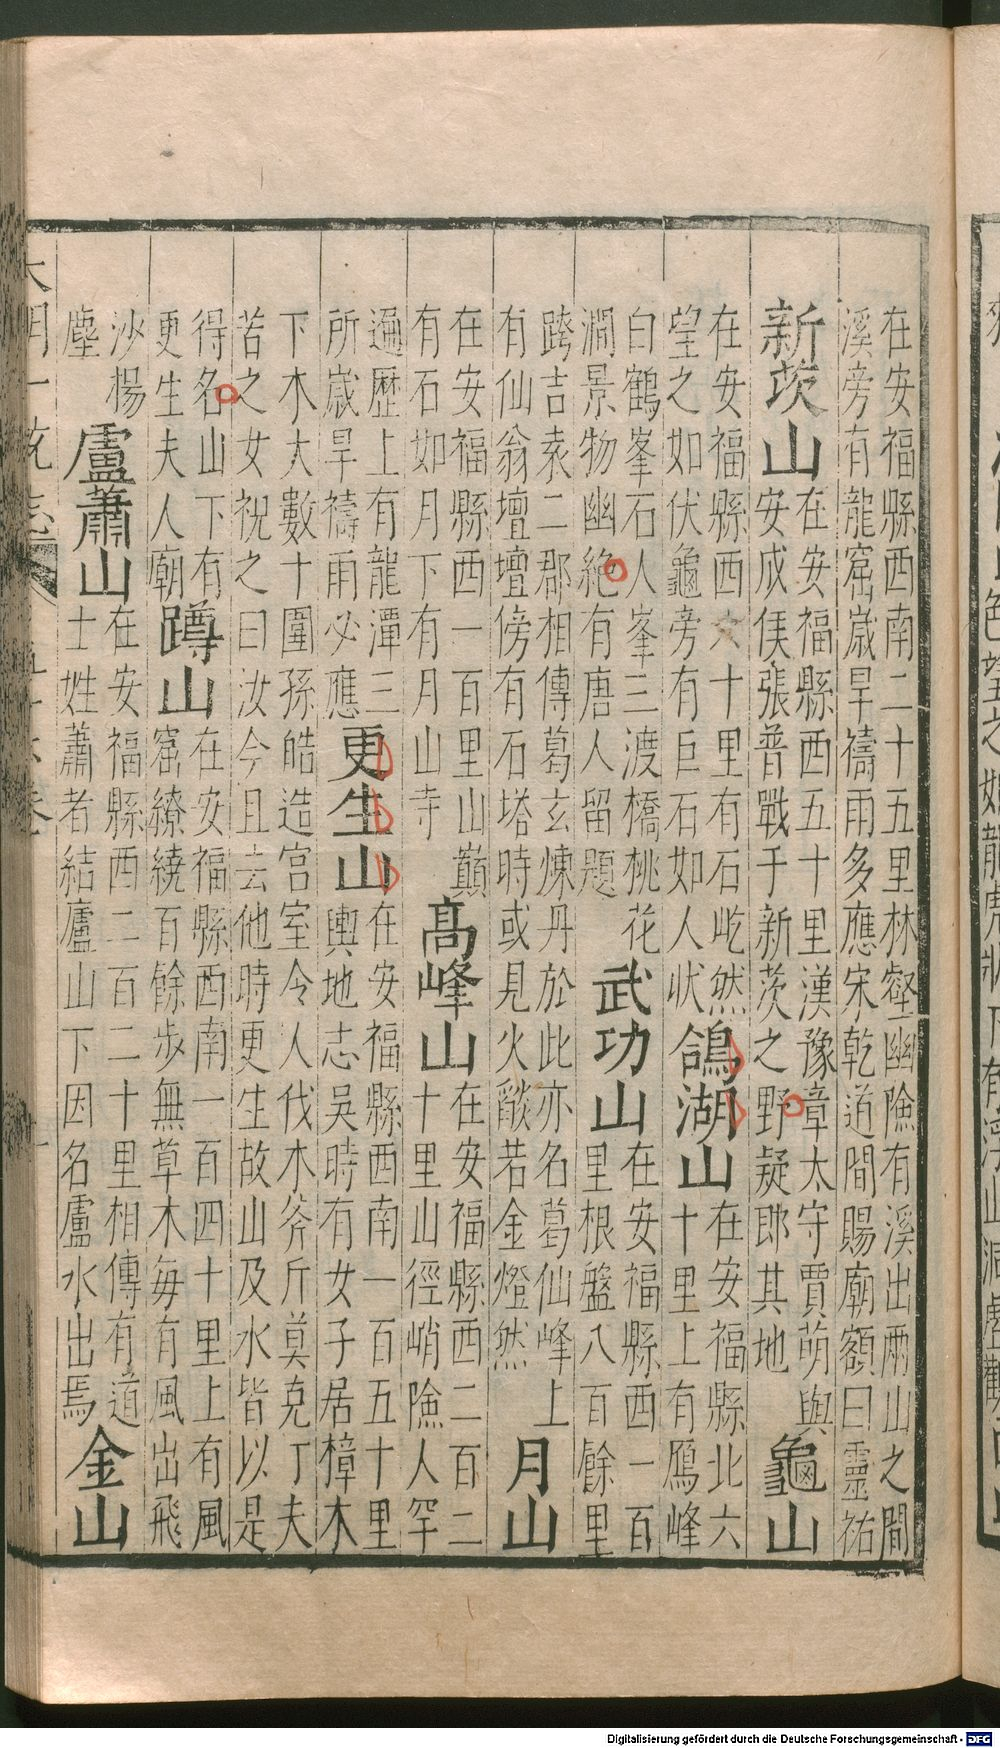 在安福縣西南二十五里林壑幽險有溪出兩山之間
溪旁有龍窟歲旱禱雨多應宋乾道間賜廟額曰靈祐
新茨山 在安福縣西五十里漢豫章太守賈萌與
安成侯張普戰于新茨之野疑即其地 龜山
在安福縣西六十里有石屹然
望之如伏龜旁有巨石如人狀 鴿湖山 在安福縣北六
十里上有鴈峰
白鶴峯石人峯三渡橋桃花
澗景物幽絶有唐人留題 武功山 在安福縣西一百
里根盤八百餘里
跨吉袁二郡相傳葛玄煉丹於此亦名葛仙峰上
有仙翁壇壇傍有石塔時或見火燄若金燈然 月山
在安福縣西一百里山巔
有石如月下有月山寺 高峰山 在安福縣西二百二
十里山徑峭險人罕
遍歷上有龍潭三
所歲旱禱雨必應 更生山 在安福縣西南一百五十里
輿地志吳時有女子居樟木
下木大數十圍孫皓造宮室令人伐木斧斤莫克丁夫
苦之女祝之曰汝今且去他時更生故山及水皆以是
得名山下有
更生夫人廟 蹲山 在安福縣西南一百四十里上有風
窟繚繞百餘步無草木每有風出飛
沙揚
塵 盧蕭山 在安福縣西二百二十里相傳有道
士姓蕭者結廬山下因名盧水出焉 金山
大明一統志